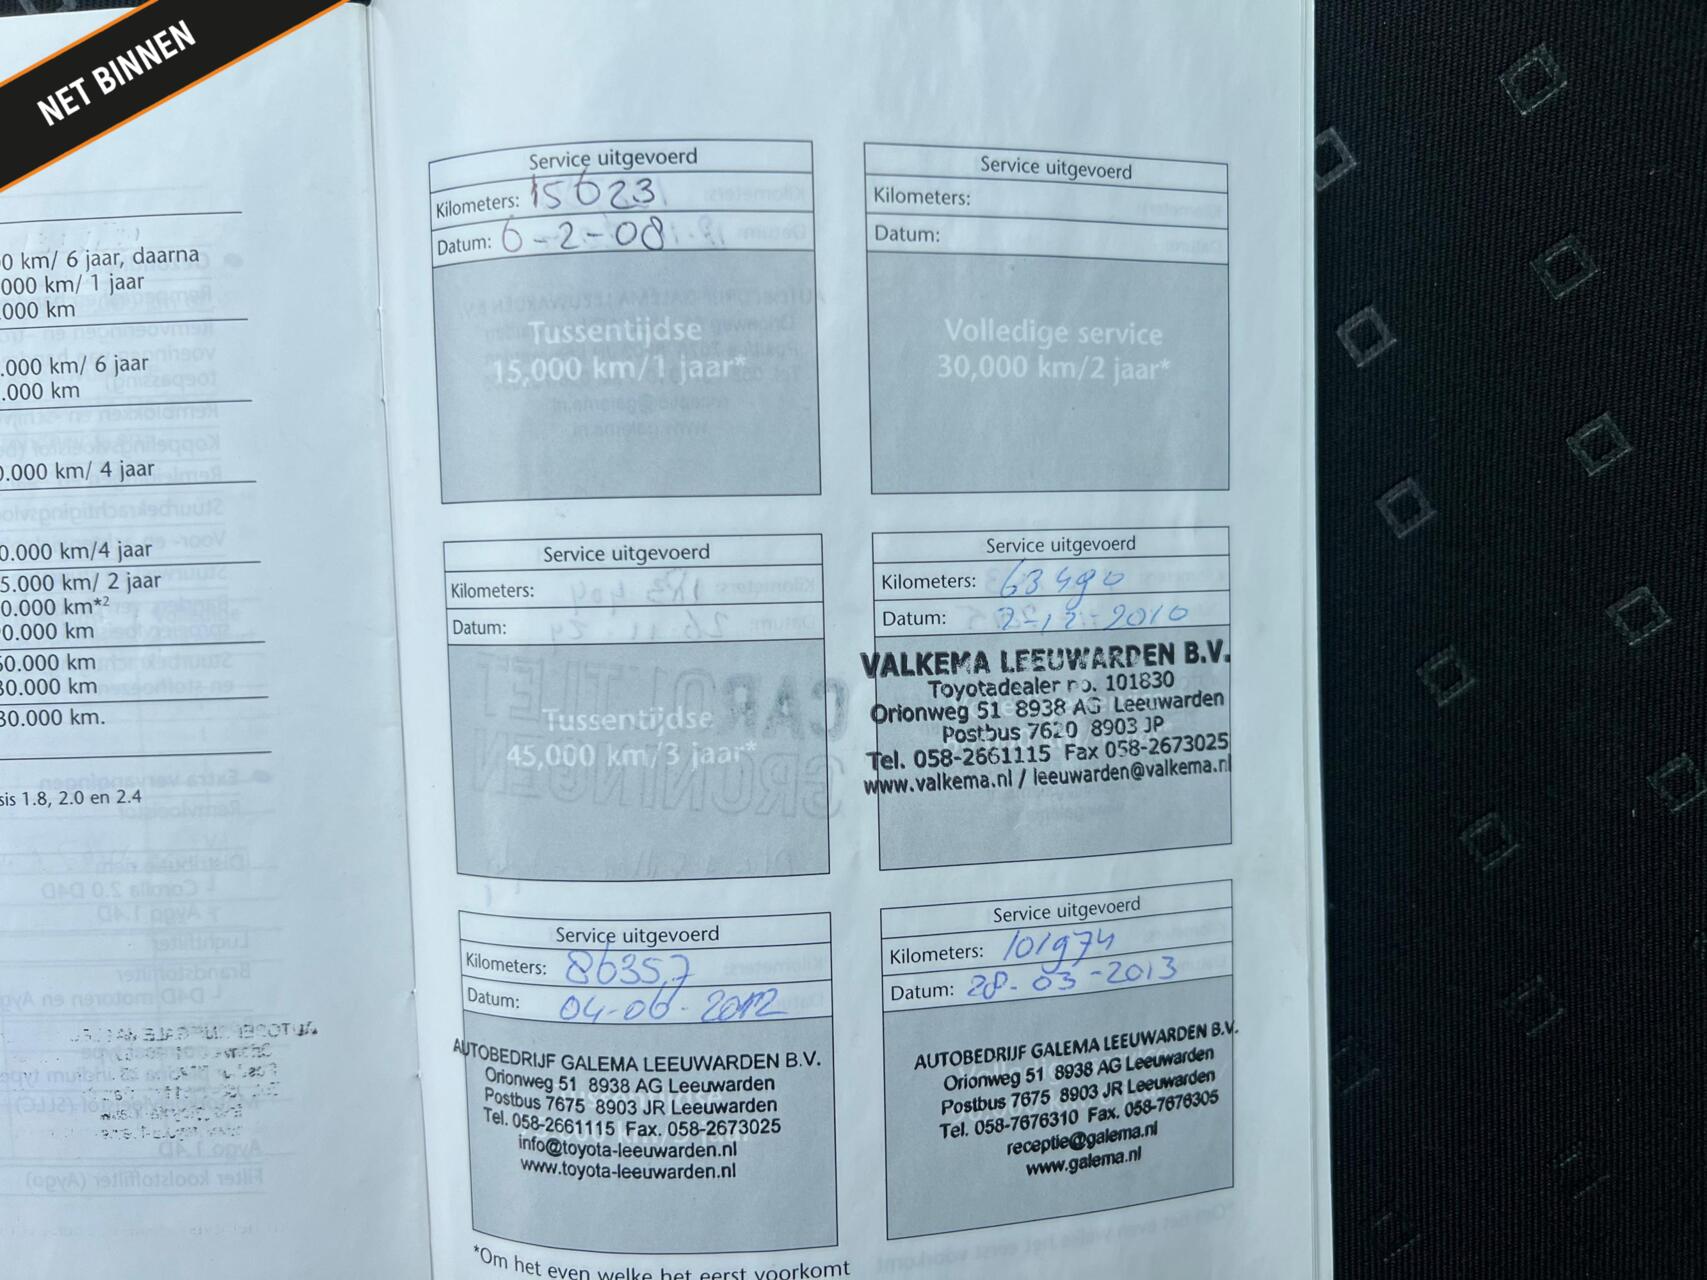 NET BINNEN
0 km/ 6 jaar, daarna
000 km/ 1 jaar
.000 km
.000 km/ 6 jaar
.000 km
0.000 km/ 4 jaar
0.000 km/4 jaar
5.000 km/ 2 jaar
0.000 km*2
0.000 km
60.000 km
30.000 km
30.000 km.
sis 1.8, 2.0 en 2.4
Service uitgevoerd
Kilometers: 15623
Datum: 6-2-08
Tussentijdse
15,000 km/1 jaar*
Service uitgevoerd
Kilometers:
Datum:
Volledige service
30,000 km/2 jaar*
Service uitgevoerd
Kilometers:
Datum:
Tussentijdse
45,000 km/3 jaar*
Service uitgevoerd
Kilometers: 63490
Datum: 2-12-2010
VALKEMA LEEUWARDEN B.V.
Toyotadealer no. 101830
Orionweg 51 8938 AG Leeuwarden
Postbus 7620 8903 JP
Tel. 058-2661115 Fax 058-2673025
www.valkema.nl / leeuwarden@valkema.nl
Service uitgevoerd
Kilometers: 86357
Datum: 04-06-2012
AUTOBEDRIJF GALEMA LEEUWARDEN B.V.
Orionweg 51 8938 AG Leeuwarden
Postbus 7675 8903 JR Leeuwarden
Tel. 058-2661115 Fax. 058-2673025
info@toyota-leeuwarden.nl
www.toyota-leeuwarden.nl
Service uitgevoerd
Kilometers: 101974
Datum: 28-03-2013
AUTOBEDRIJF GALEMA LEEUWARDEN B.V.
Orionweg 51 8938 AG Leeuwarden
Postbus 7675 8903 JR Leeuwarden
Tel. 058-7676310 Fax. 058-7676305
receptie@galema.nl
www.galema.nl
*Om het even welke het eerst voorkomt